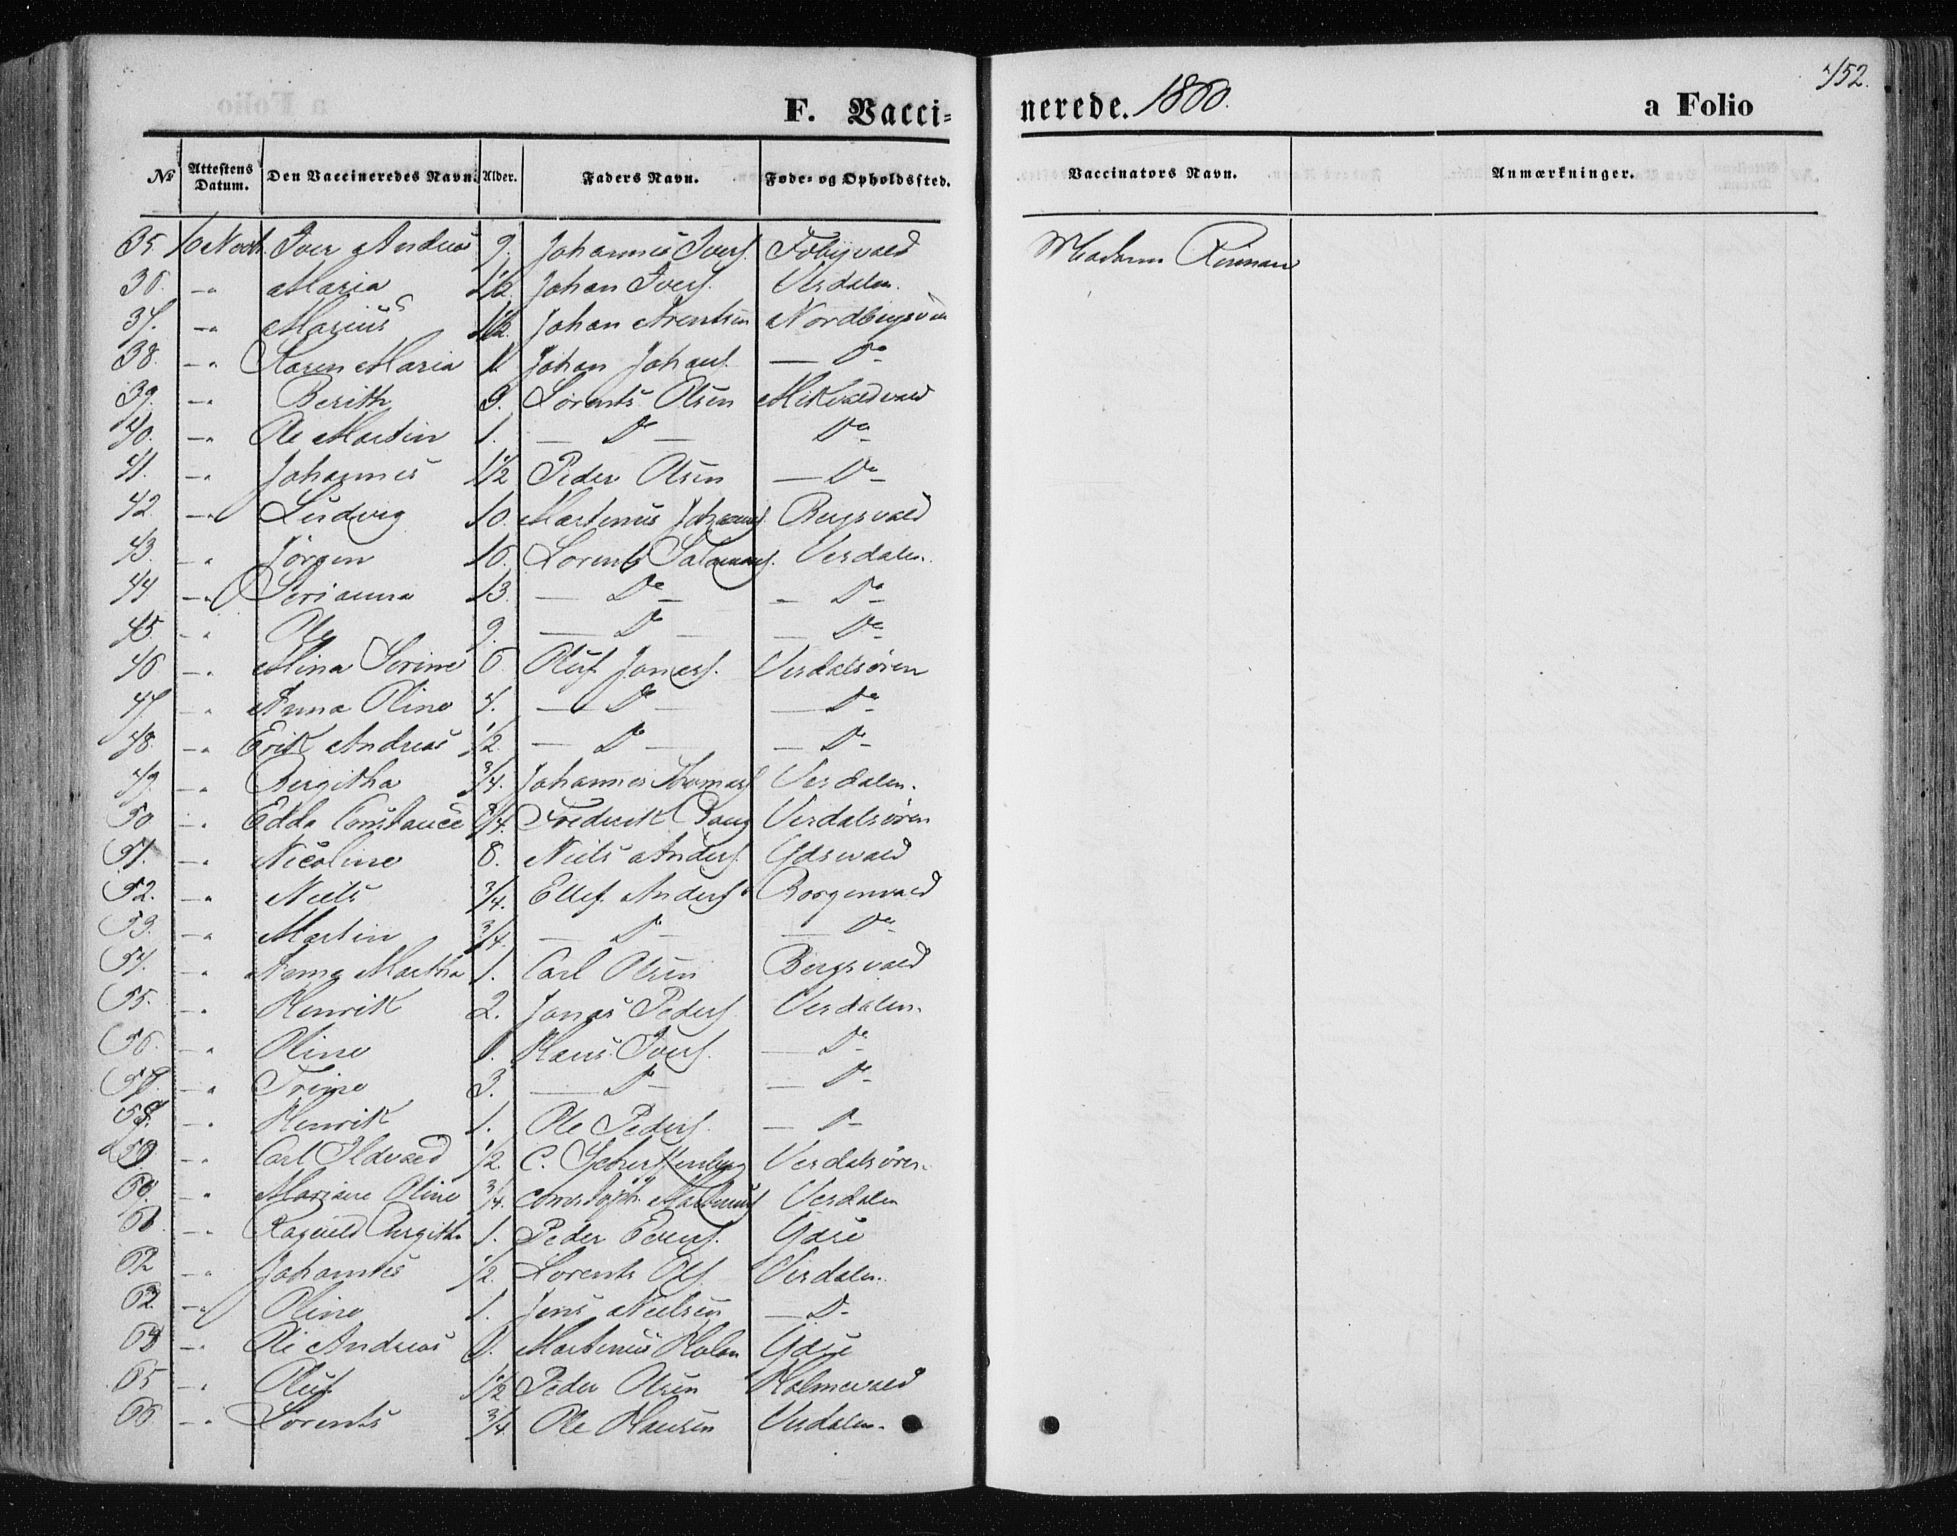 452.
F. Vaccinerede. 1860. a Folio
№ Attestens Datum. Den Vaccineredes Navn. Alder. Faders Navn. Føde- og Opholdssted. Vaccinators Navn. Anmærkninger.
35 Iver Andreas 9. Johannes Ivers. Madam
36. -" Maria 1 1/2 Johan Ivers. Verdalen.
37. -" Marius 1 1/2. Johan Arentsen
38. -" Karen Maria Johan Johans. — Do -
39. -" Berith 3. Lorents Olsen
40. -" Ole Martin 1. — Do — Do -
41. -" Johannes 1 1/2 Peder Olsen — Do -
42 -" Ludvig 10. Martinus Bergsvald
43. -" Jörgen 16. Lorents Salamons. Verdalen.
44 -" Serianna 13. — Do - - Do -
45. -" Ole 9. — Do - — Do -
46 -" Mina Sorine 6. Oluf Verdalsøren
47 -" Anna Oline 4. — Do - — Do -
48. -" Erik Andreas 1/2. — Do - — Do -
49. -" Bergitha 3/4. Johannes Verdalen.
50 -" Edda Constance 3/4. Frederik Verdalsøren
51. -" Nicoline 8. Niels Anders. Ydsevald
52. -" Niels 3/4. Ellef Anders. Borgenvald
53. -" Martin 3/4. — Do - — Do -
54. -" Anna Martha 1. Carl Olsen Bergsvald
55. -" Henrik 2. Jonas Peders. Verdalen.
56. -" Oline 1. Hans Ivers. — Do -
57. -" Trine 3. — Do - — Do -
58. -" Henrik 1. Ole Peders. — Do -
59. -" Carl 1/2. C. Verdalsøren.
60. -" Mariane Oline 3/4. Verdalen
61. -" 1. Peder Ydse
62 -" Johannes 1/2. Lorents Ols. Verdalen.
63. -" Oline 1. Jens Nielsen — Do -
64 -" Ole Andreas Martinus Holan Ydse
65 -" Oluf 1 1/2 Peder Olsen
66 -" Lorents 3/4 Ole Hansen Verdalen.